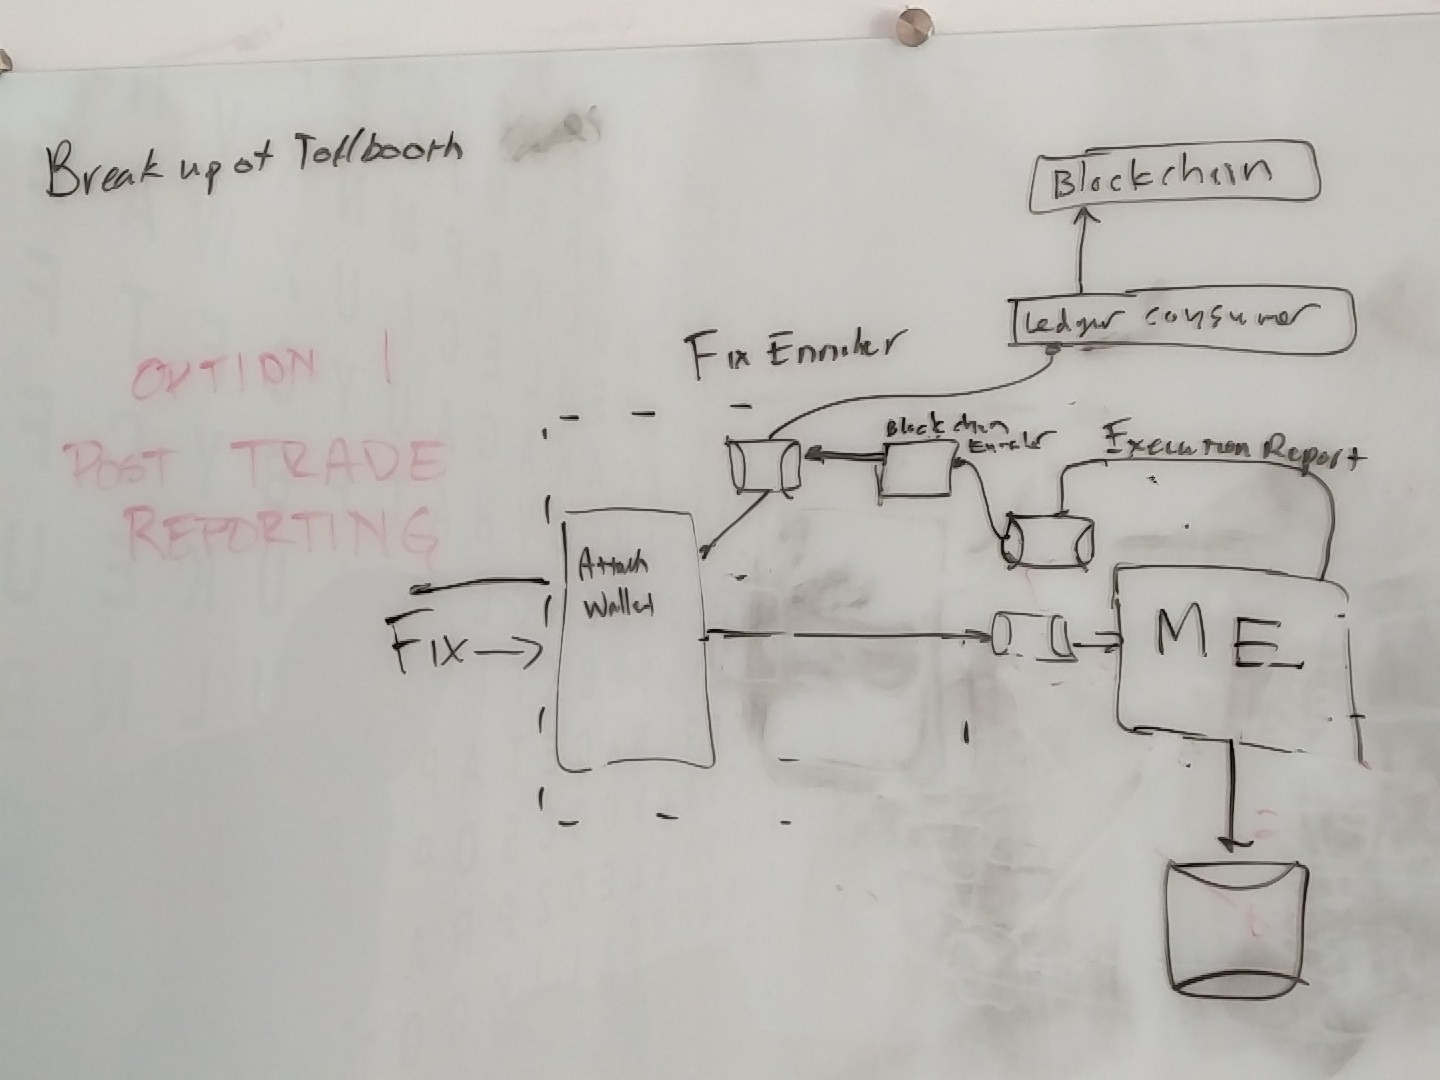 Break up of Tollbooth
OPTION 1
POST TRADE
REPORTING
Blockchain
Ledger consumer
Fix Enricher
Blockchain
Enricher
Execution Report
Attach
Wallet
FIX
ME